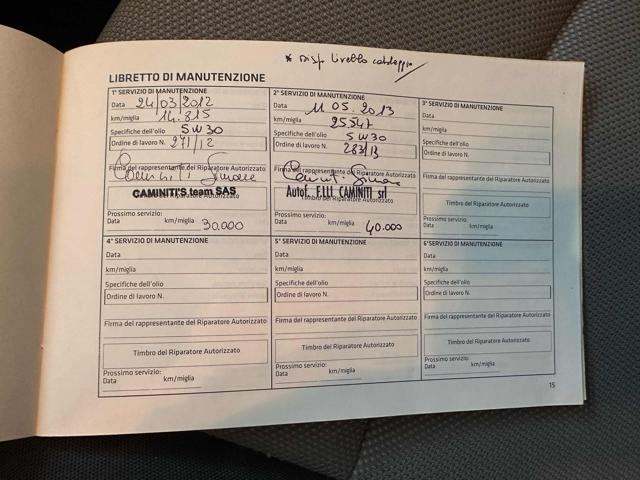 * Disp. livello
LIBRETTO DI MANUTENZIONE
1° SERVIZIO DI MANUTENZIONE
Data 24/03/2012
km/miglia 14.815
Specifiche dell'olio 5W30
Ordine di lavoro N. 271/12
Firma del rappresentante del Riparatore Autorizzato
CAMINITI'S team SAS
Timbro del Riparatore Autorizzato
Prossimo servizio:
Data km/miglia 30.000
2° SERVIZIO DI MANUTENZIONE
Data 11.05.2013
km/miglia 25.547
Specifiche dell'olio 5W30
Ordine di lavoro N. 283/13
Firma del rappresentante del Riparatore Autorizzato
Autof. F.LLI CAMINITI srl
Timbro del Riparatore Autorizzato
Prossimo servizio:
Data km/miglia 40.000
3° SERVIZIO DI MANUTENZIONE
Data
km/miglia
Specifiche dell'olio
Ordine di lavoro N.
Firma del rappresentante del Riparatore Autorizzato
Timbro del Riparatore Autorizzato
Prossimo servizio:
Data km/miglia
4° SERVIZIO DI MANUTENZIONE
Data
km/miglia
Specifiche dell'olio
Ordine di lavoro N.
Firma del rappresentante del Riparatore Autorizzato
Timbro del Riparatore Autorizzato
Prossimo servizio:
Data km/miglia
5° SERVIZIO DI MANUTENZIONE
Data
km/miglia
Specifiche dell'olio
Ordine di lavoro N.
Firma del rappresentante del Riparatore Autorizzato
Timbro del Riparatore Autorizzato
Prossimo servizio:
Data km/miglia
6° SERVIZIO DI MANUTENZIONE
Data
km/miglia
Specifiche dell'olio
Ordine di lavoro N.
Firma del rappresentante del Riparatore Autorizzato
Timbro del Riparatore Autorizzato
Prossimo servizio:
Data km/miglia
15